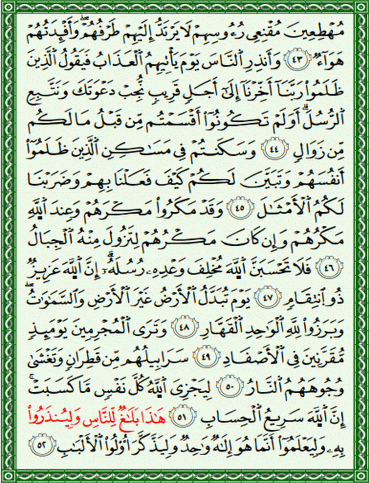 مُهْطِعِينَ مُقْنِعِي رُءُوسِهِمْ لَا يَرْتَدُّ إِلَيْهِمْ طَرْفُهُمْ ۖ وَأَفْـِٔدَتُهُمْ
هَوَآءٌ ﴿٤٣﴾ وَأَنذِرِ النَّاسَ يَوْمَ يَأْتِيهِمُ الْعَذَابُ فَيَقُولُ الَّذِينَ
ظَلَمُوا۟ رَبَّنَآ أَخِّرْنَآ إِلَىٰٓ أَجَلٍ قَرِيبٍ نُّجِبْ دَعْوَتَكَ وَنَتَّبِعِ
الرُّسُلَ ۗ أَوَلَمْ تَكُونُوٓا۟ أَقْسَمْتُم مِّن قَبْلُ مَا لَكُم
مِّن زَوَالٍ ﴿٤٤﴾ وَسَكَنتُمْ فِي مَسَٰكِنِ الَّذِينَ ظَلَمُوٓا۟
أَنفُسَهُمْ وَتَبَيَّنَ لَكُمْ كَيْفَ فَعَلْنَا بِهِمْ وَضَرَبْنَا
لَكُمُ الْأَمْثَالَ ﴿٤٥﴾ وَقَدْ مَكَرُوا۟ مَكْرَهُمْ وَعِندَ اللَّهِ
مَكْرُهُمْ وَإِن كَانَ مَكْرُهُمْ لِتَزُولَ مِنْهُ الْجِبَالُ
﴿٤٦﴾ فَلَا تَحْسَبَنَّ اللَّهَ مُخْلِفَ وَعْدِهِۦ رُسُلَهُۥٓ ۗ إِنَّ اللَّهَ عَزِيزٌ
ذُو انتِقَامٍ ﴿٤٧﴾ يَوْمَ تُبَدَّلُ الْأَرْضُ غَيْرَ الْأَرْضِ وَالسَّمَٰوَٰتُ ۖ
وَبَرَزُوا۟ لِلَّهِ الْوَٰحِدِ الْقَهَّارِ ﴿٤٨﴾ وَتَرَى الْمُجْرِمِينَ يَوْمَئِذٍ
مُّقَرَّنِينَ فِي الْأَصْفَادِ ﴿٤٩﴾ سَرَابِيلُهُم مِّن قَطِرَانٍ وَتَغْشَىٰ
وُجُوهَهُمُ النَّارُ ﴿٥٠﴾ لِيَجْزِيَ اللَّهُ كُلَّ نَفْسٍ مَّا كَسَبَتْ ۚ
إِنَّ اللَّهَ سَرِيعُ الْحِسَابِ ﴿٥١﴾ هَٰذَا بَلَٰغٌ لِّلنَّاسِ وَلِيُنذَرُوا۟
بِهِۦ وَلِيَعْلَمُوٓا۟ أَنَّمَا هُوَ إِلَٰهٌ وَٰحِدٌ وَلِيَذَّكَّرَ أُو۟لُوا۟ الْأَلْبَٰبِ ﴿٥٢﴾